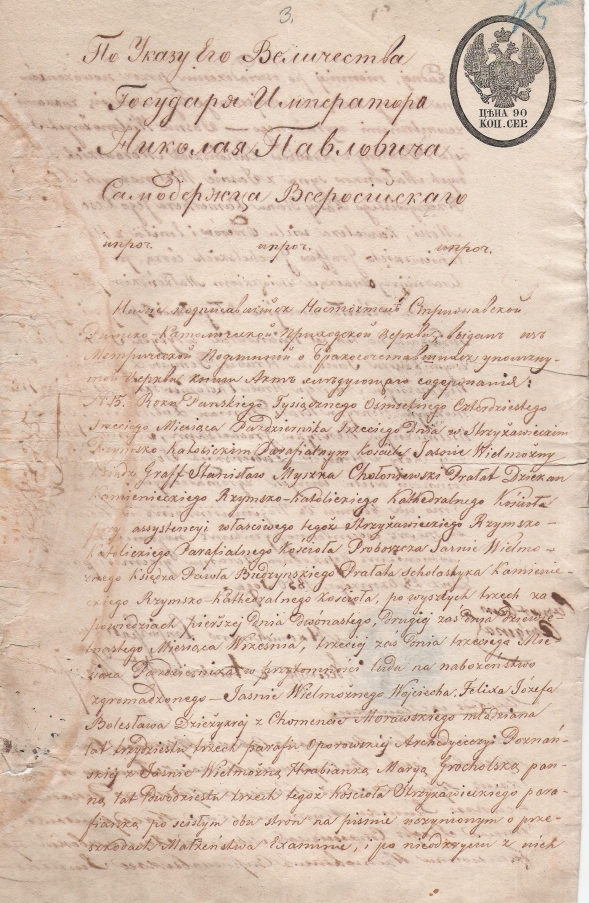 3.
15
По Указу Его Величества
Государя Императора
Николая Павловича
Самодержца Всеросiйскаго
ипроч. ипроч. ипроч.
ЦѢНА 90
КОП. СЕР.
Ниже подписавшiйся Настоятель Стрижавской
Римско-Католической Приходской Церкви, выдан изъ
Метрической о Бракосочетавшихся упомяну-
той Церкви книги Актъ слѣдующаго содержанiя:
N 15. Roku Pańskiego Tysiącznego Ośmsetnego Czterdziestego
trzeciego Miesiąca Października Trzeciego Dnia w Strzyżawieckim
Rzymsko-Katolickim Parafialnym Kościele Jaśnie Wielmożny
Xiądz Graff Stanisław Myszka Chołoniewski Prałat Dziekan
Kamienieckiego Rzymsko-Katolickiego Kathedralnego Kościoła
przy assystencyi właściwego tegoż Strzyżawieckiego Rzymsko-
Katolickiego Parafialnego Kościoła Proboszcza Jaśnie Wielmo-
żnego Księdza Pawła Budzynskiego Prałata Scholastyka Kamienie-
ckiego Rzymsko-Kathedralnego Kościoła, po wyszłych trzech za-
powiedziach pierwszej Dnia Dwonastego, drugiej zaś Dnia Dziewię-
tnastego Miesiąca Września, trzeciej zaś Dnia trzeciego Mie-
siąca Października, w przytomności ludu na nabożeństwo
zgromadzonego - Jaśnie Wielmożnego Wojciecha, Felixa Józefa
Bolesława Dzierżykraj z Chomencic Morawskiego młodziana
lat trzydziestu trzech parafii Oporowskiej Archidyecezyi Poznań-
skiej z Jaśnie Wielmożną Hrabianką Maryą Grocholską pan-
ną lat Dwódziestu trzech tegoż Kościoła Strzyżawieckiego para-
fianką po scisłym obu stron na piśmie uczynionym o prze-
szkodach Małżeństwa Examinie, i po nieodkryciu z nich